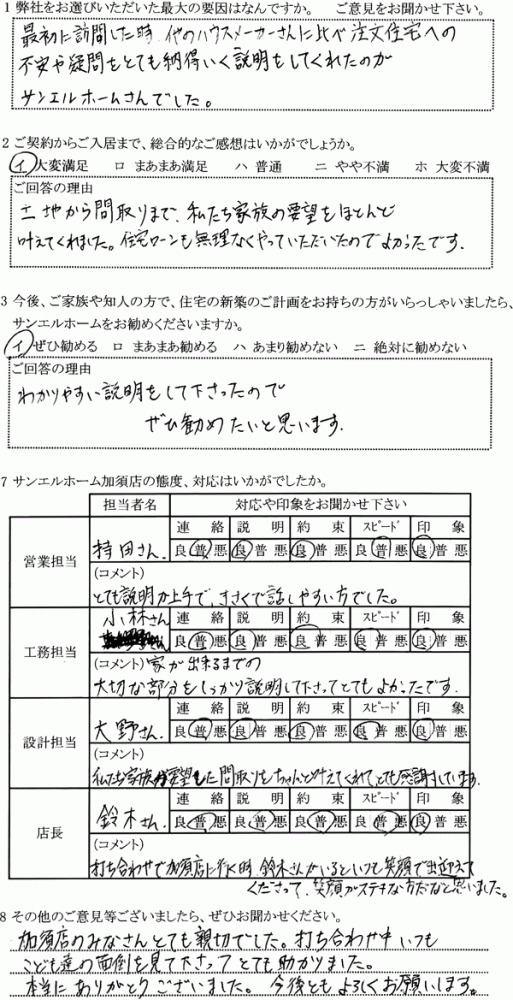 1 弊社をお選びいただいた最大の要因はなんですか。 ご意見をお聞かせ下さい。
最初に訪問した時、他のハウスメーカーさんに比べ注文住宅への
不安や疑問をとても納得いく説明をしてくれたのが
サンエルホームさんでした。
2 ご契約からご入居まで、総合的なご感想はいかがでしょうか。
イ 大変満足 ロ まあまあ満足 ハ 普通 ニ やや不満 ホ 大変不満
ご回答の理由
土地から間取りまで、私たち家族の要望をほとんど
叶えてくれました。住宅ローンも無理なくやっていただいたのでよかったです。
3 今後、ご家族や知人の方で、住宅の新築のご計画をお持ちの方がいらっしゃいましたら、
サンエルホームをお勧めくださいますか。
イ ぜひ勧める ロ まあまあ勧める ハ あまり勧めない ニ 絶対に勧めない
ご回答の理由
わかりやすい説明をして下さったので
ぜひ勧めたいと思います。
7 サンエルホーム加須店の態度、対応はいかがでしたか。
担当者名 対応や印象をお聞かせ下さい
営業担当 持田さん 連絡 説明 約束 スピード 印象
良普悪 良普悪 良普悪 良普悪 良普悪
(コメント)
とても説明が上手で、きさくで話しやすい方でした。
工務担当 小林さん 連絡 説明 約束 スピード 印象
良普悪 良普悪 良普悪 良普悪 良普悪
(コメント) 家が出来るまでの
大切な部分をしっかり説明して下さってとてもよかったです。
設計担当 大野さん 連絡 説明 約束 スピード 印象
良普悪 良普悪 良普悪 良普悪 良普悪
(コメント)
私たち家族が要望した間取りもちゃんと叶えてくれて、とても感謝しています。
店長 鈴木さん 連絡 説明 約束 スピード 印象
良普悪 良普悪 良普悪 良普悪 良普悪
(コメント)
打ち合わせで加須店に行く時、鈴木さんがいるといつも笑顔で出迎えて
くださって、笑顔がステキな方だなと思いました。
8 その他のご意見等ございましたら、ぜひお聞かせください。
加須店のみなさんとても親切でした。打ち合わせ中いつも
こども達の面倒を見て下さってとても助かりました。
本当にありがとうございました。今後ともよろしくお願いします。